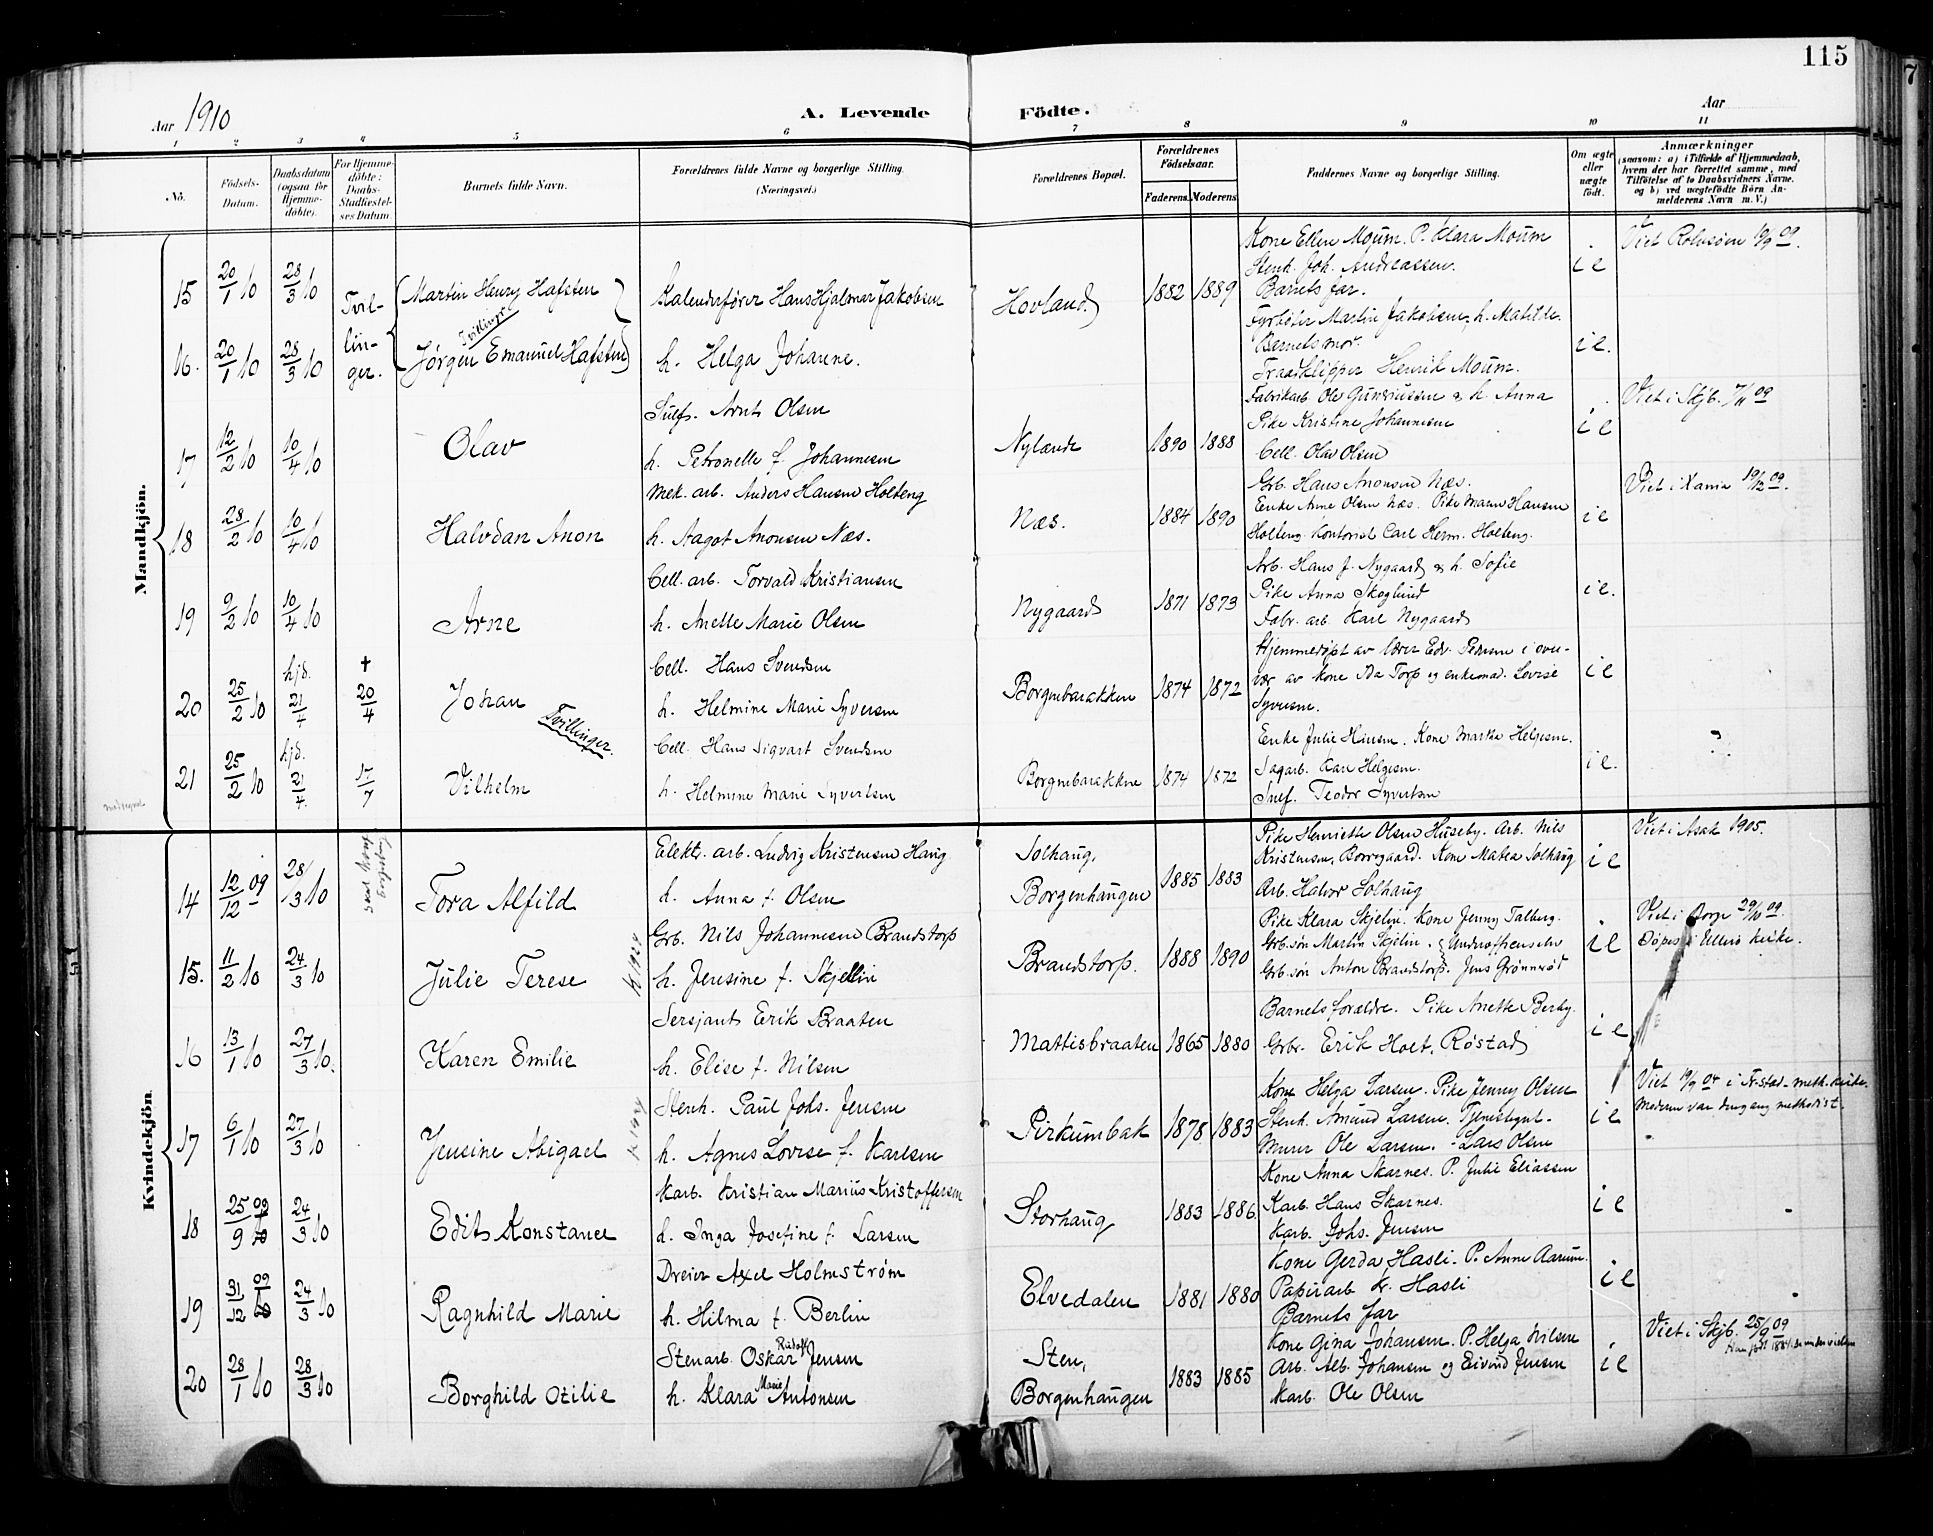 115
Aar 1910
A. Levende Födte.
Aar
1 2 3 4 5 6 7 8 9 10 11
No.
Födsels-Datum.
Daabsdatum (ogsaa for Hjemmedöbte).
For Hjemmedöbte: Daabs-Stadfæstelses Datum
Barnets fulde Navn.
Forældrenes fulde Navne og borgerlige Stilling. (Næringsvei.)
Forældrenes Bopæl.
Forældrenes Födselsaar.
Faderens. Moderens.
Faddernes Navne og borgerlige Stilling.
Om ægte eller uægte födt.
Anmærkninger
(saasom: a) i Tilfælde af Hjemmedaab, hvem der har forrettet samme, med Tilföielse af to Daabsvidners Navne. og b) ved uægtefödte Börn Anmelderens Navn m. V.)
Mandkjön.
15 20/1 10 28/3 10 Tvillinger. Martin Henry Hafsten
Kalenderfører Hans Hjalmar Jakobsen
Hovland 1882 1889
Kone Ellen Moum. P. Klara Moum
Stenh. Joh. Andreassen.
Barnets far.
i e
Viet Rolvsøen 19/9 09.
16. 20/1 10 28/3 10 Jørgen Emanuel Hafsten
Tvillinger
h. Helga Johanne.
Fyrbøter Martin Jakobsen, h. Matilde.
Barnets mor.
Henrik Moum.
i e.
17 12/2 10 10/4 10 Olav
Arnt Olsen
h. Petronelle f. Johannesen
Nylænde 1890 1888
Fabrikarb. Ole Guneriussen & h. Anna
Pike Kristine Johannesen
Cell. Olav Olsen
i e
Viet i Skjb. 7/11 09
18 28/2 10 10/4 10 Halvdan Anon
Mek. arb. Anders Hansen Holteng
h. Aagot Anonsen Næs.
Næs. 1884 1890
Grb. Hans Anonsen Næs.
Enke Anne Olsen Næs. Pike Marie Hansen
Holteng. Kontorist Carl Herm. Holteng.
i e
Viet i Xania 19/12 09.
19 9/2 10 10/4 10 Arne
Cell. arb. Torvald Kristiansen
h. Anette Marie Olsen
Nygaard 1871 1873
Arb. Hans J. Nygaard & h. Sofie
Pike Anna Skoglund
Fabr. arb. Karl Nygaard
i e.
20 25/2 10 hjd. 21/4 † 20/4 Johan
Tvillinger.
Cell. Hans Svendsen
h. Helmine Marie Syversen
Borgenbarakken 1874 1872
Hjemmedøpt av lærer Edv. Pedersen i over-
vær av kone Ida Torp og enkemad. Lovise
Syversen.
i e
21 25/2 10 hjd. 21/4 17/7 Vilhelm
Cell. Hans Sigvart Svendsen
h. Helmine Marie Syvertsen
Borgenbarakkne 1874 1872
Enke Julie Hansen. Kone Marthe Helgesen.
Sagarb. Karl Helgesen.
Teodor Syvertsen
i e.
Kvindekjön.
14 12/12 09 28/3 10 Tora Alfild
Elektr. arb. Ludvig Kristensen Haug
h. Anna f. Olsen
Solhaug, Borgenhaugen 1885 1883
Pike Henriette Olsen Huseby. Arb. Nils
Kristensen, Borregaard. Kone Matea Solhaug
Arb. Halvor Solhaug
i e
Viet i Asak 1905.
15. 11/2 10 24/3 10 Julie Terese
Grb. Nils Johannesen Brandstorp
h. Jensine f. Skjellin
Brandstorp. 1888 1890
Pike Klara Skjelin. Kone Jenny Talberg.
Grb.søn Martin Skjelin. Underoffiserselev
Grb.søn Anton Brandstorp. Jens Grønnerød
i e
Viet i Borge 29/10 09.
Døpes i Ullerø kirke.
16 13/1 10 27/3 10. Karen Emilie
Sersjant Erik Braaten
h. Elise f. Nilsen
Mattisbraaten 1865 1880
Barnets forældre. Pike Anette Berby.
Grbr. Erik Holt, Røstad
i e
17 6/1 10 27/3 10 Jensine Abigael
Stenh. Paul Johs. Jensen
h. Agnes Lovise f. Karlsen
Pirkumbak 1878 1883
Kone Helga Larsen. Pike Jenny Olsen
Stenh. Amund Larsen. Tjenestegut-
Murer Ole Larsen. - Lars Olsen
i e
Viet 19/9 04 i Fr.stad - meth. kirke.
Moderen var dengang methodist.
18 25/9 09 24/3 10 Edith Konstance
Karb. Kristian Marius Kristoffersen
h. Inga Josefine f. Larsen
Storhaug 1883 1886.
Kone Anna Skarnes. P. Julie Eliassen
Karb. Hans Skarnes.
Karb. Johs. Jensen
i e
19 31/12 09 24/3 10 Ragnhild Marie
Dreier Axel Holmstrøm
h. Hilma f. Berlin
Elvedalen 1881 1880
Kone Gerda Hasli. P. Anne Aarum.
Papirarb Kr. Hasli
Barnets far
i e
20 28/1 10 28/3 10 Borghild Otilie
Stenarb. Oskar Rudolf Jensen
h. Klara Marie Antonsen
Sten, Borgenhaugen 1883 1885
Kone Gina Johansen. P. Helga Nilsen
Arb. Alb. Johansen og Eivind Jensen
Karb. Ole Olsen
i e
Viet i Skjb. 25/9 09